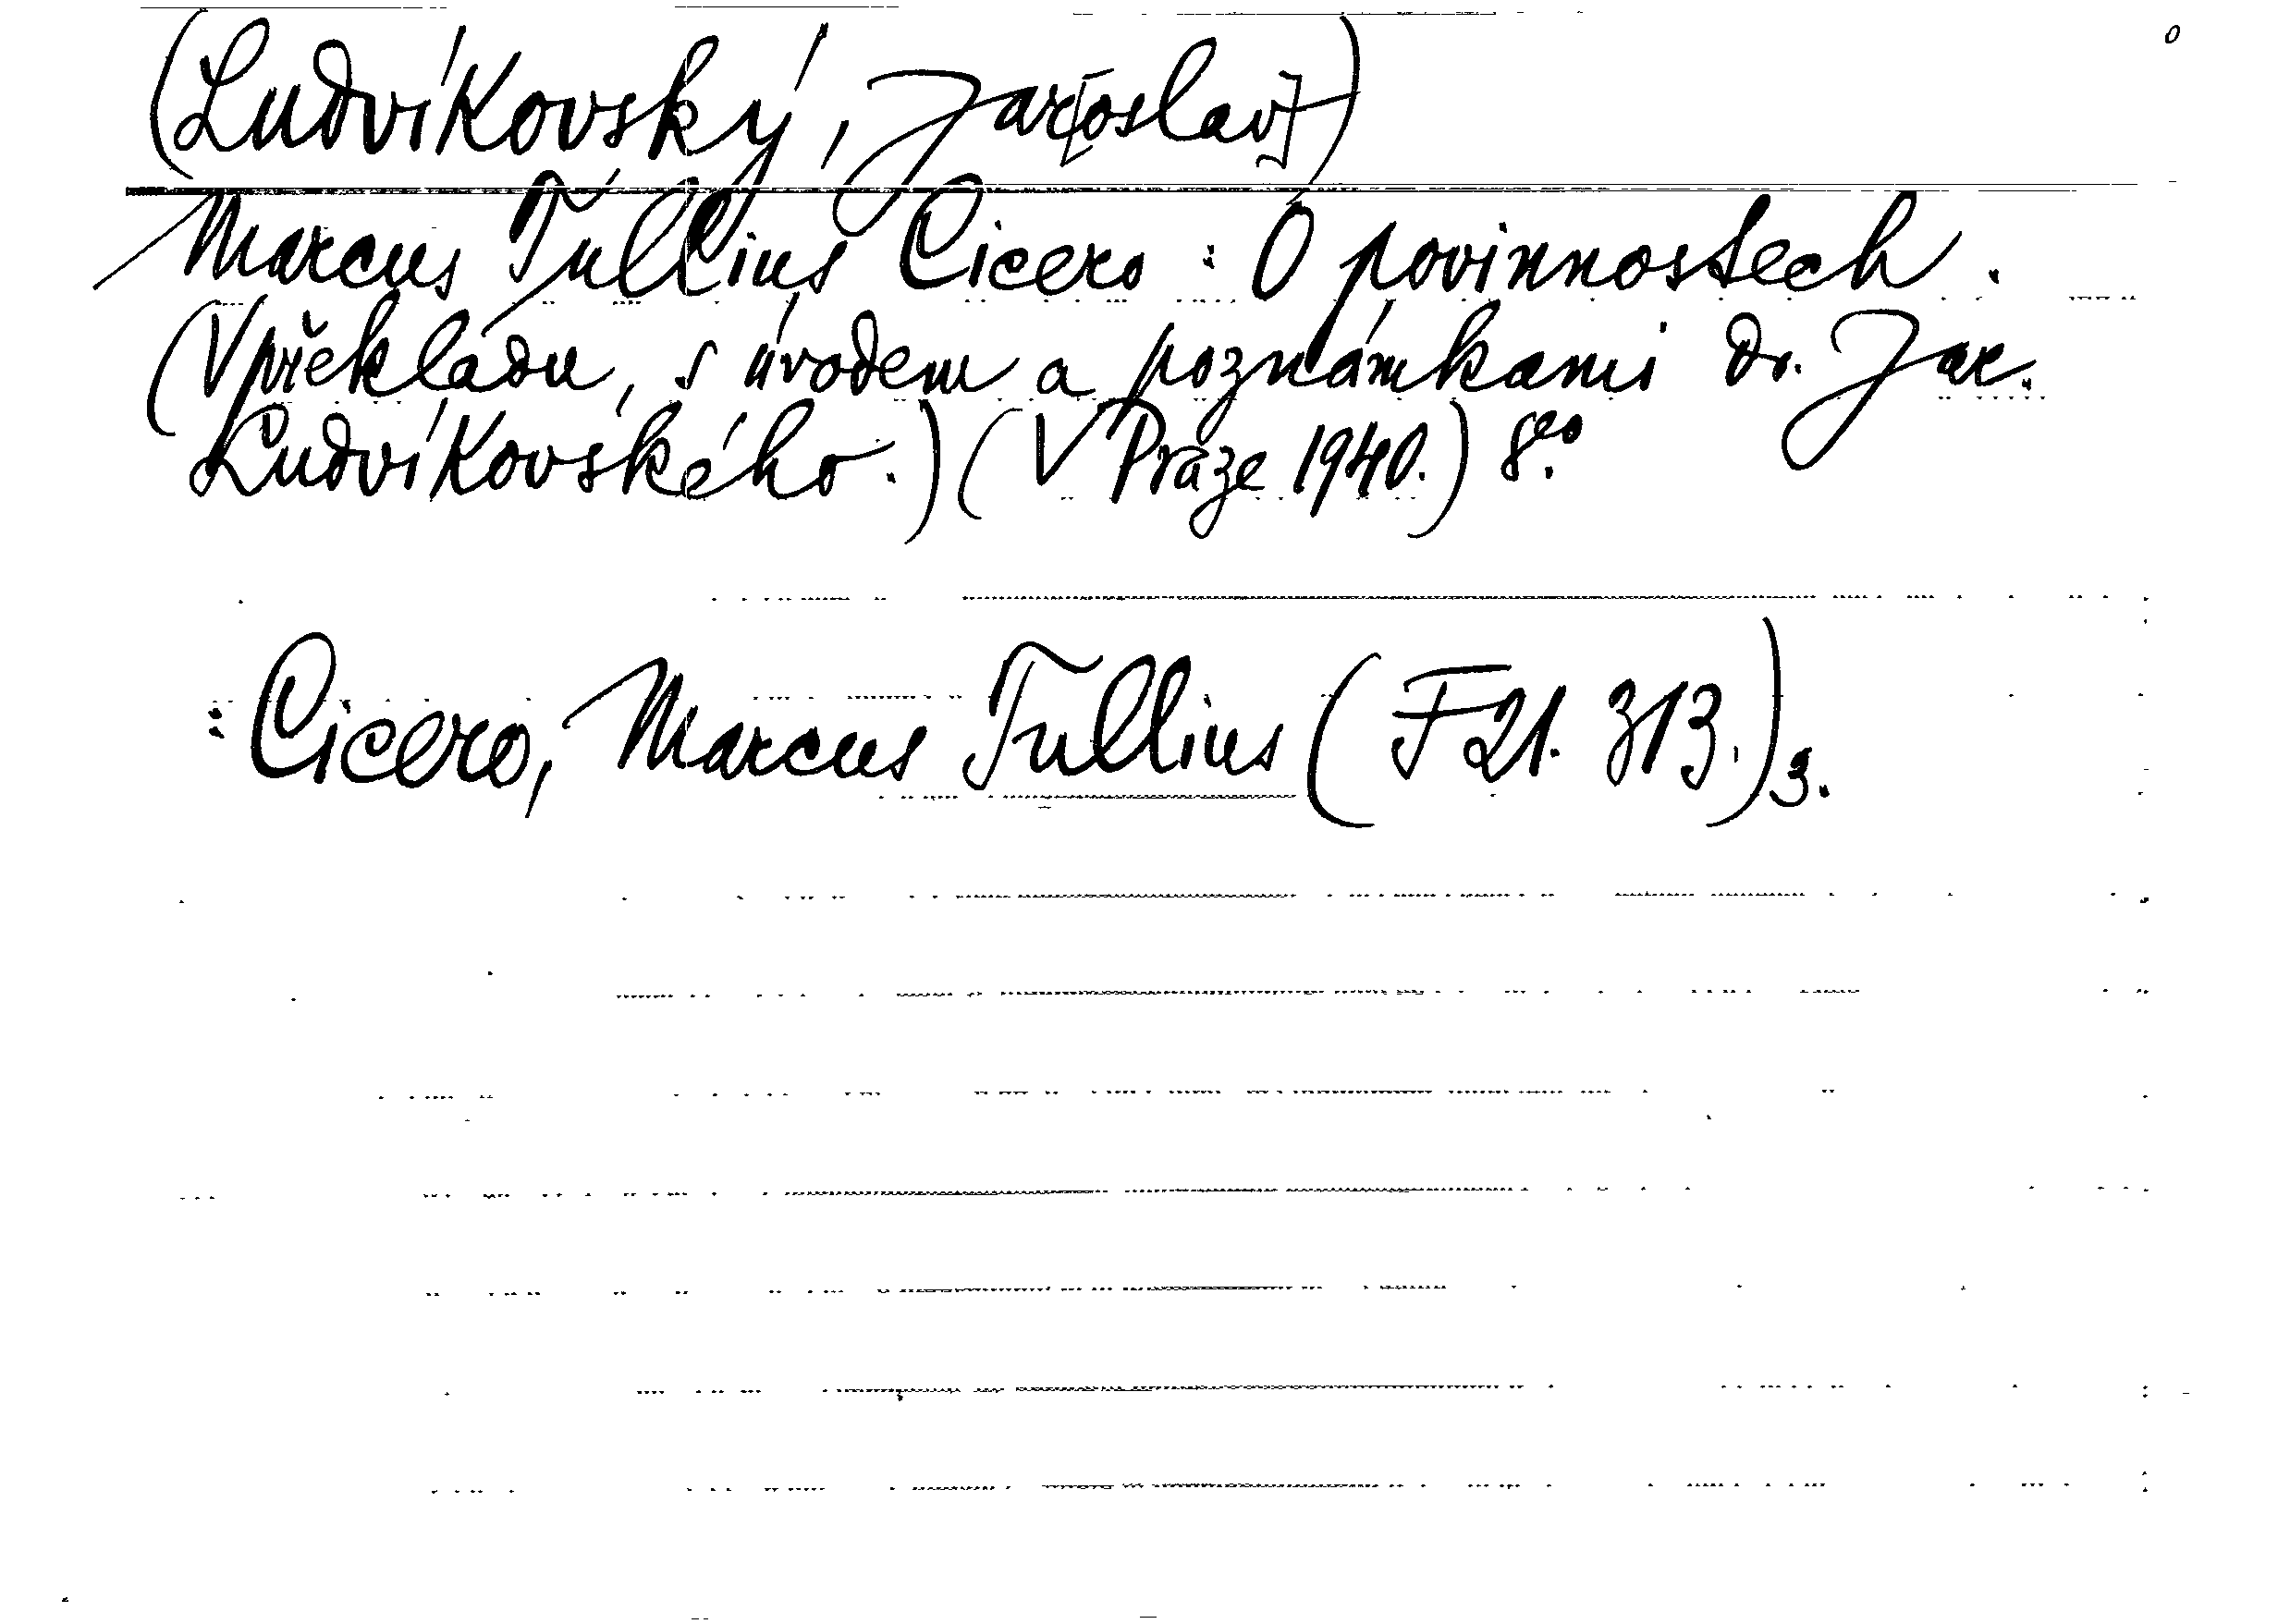 (Ludvíkovský, Jar[oslav])
Marcus Tullius Cicero: O povinnostech.
(V překladu, s úvodem a poznámkami dr. Jar.
Ludvíkovského.) (V Praze 1940.) 8.°
: Cicero, Marcus Tullius (F 21. 313.) 3.